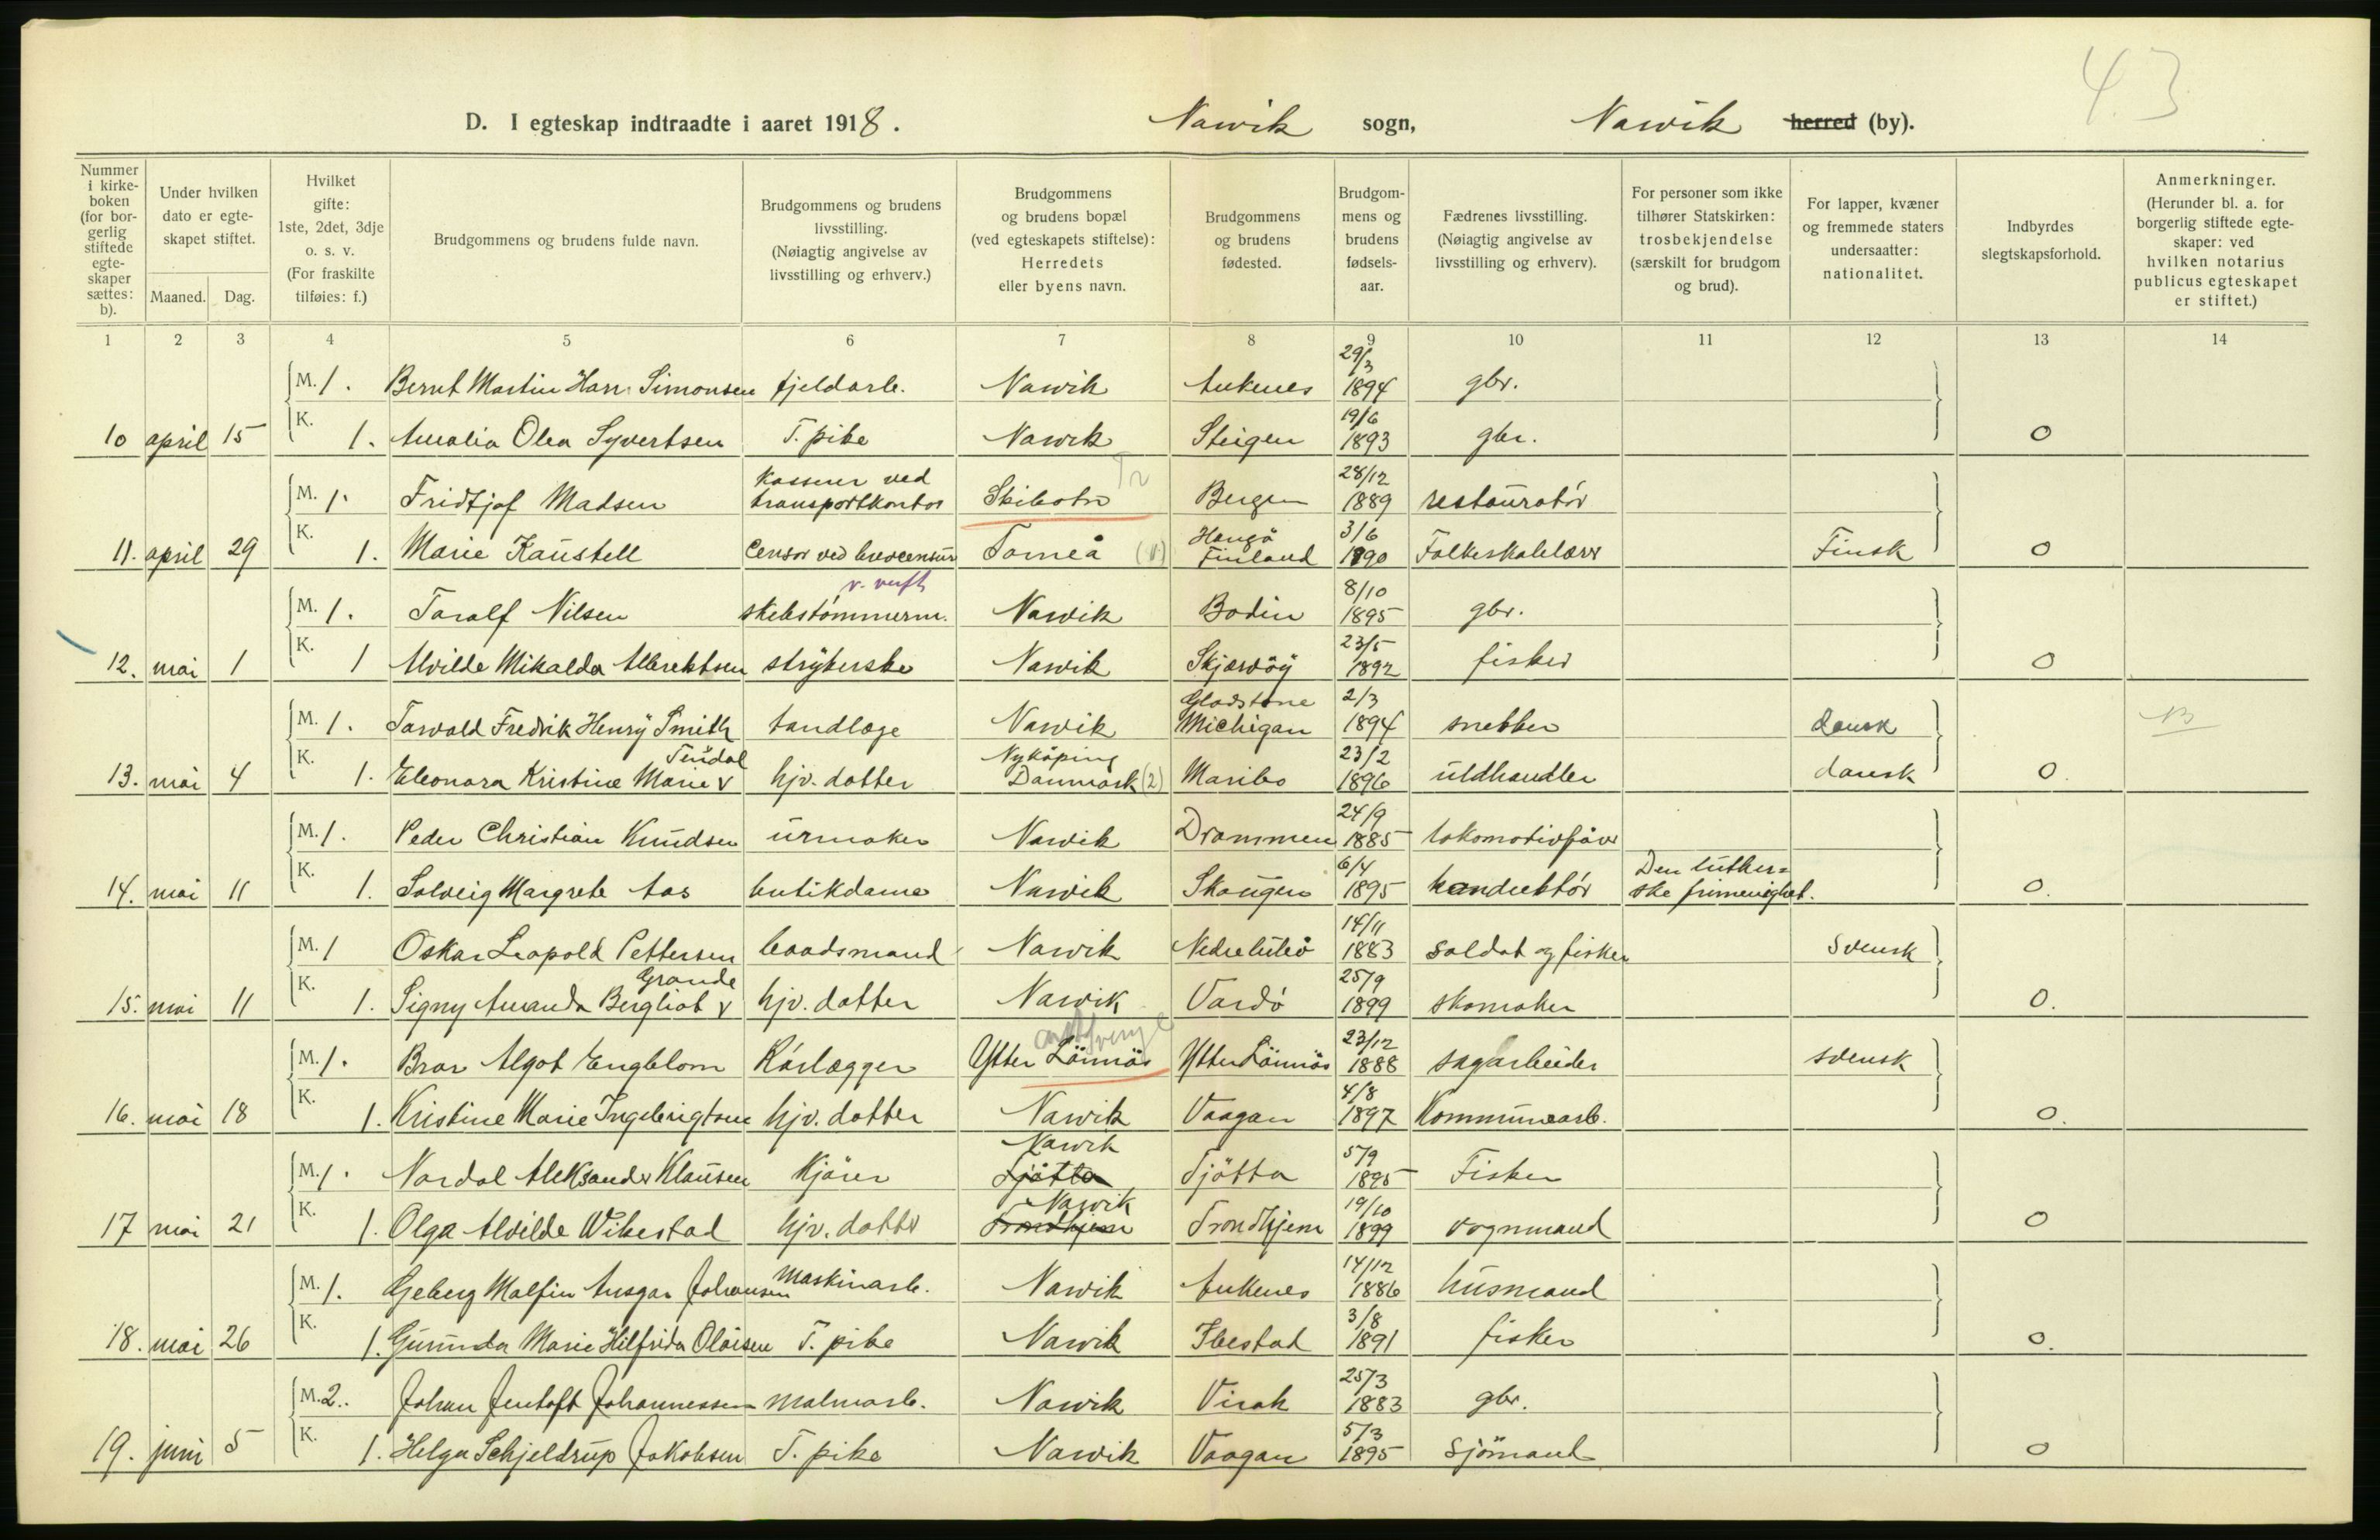 43
D. I egteskap indtraadte i aaret 1918. Narvik sogn, Narvik herred (by).
Nummer i kirkeboken (for borgerlig stiftede egteskaper sættes: b).
Under hvilken dato er egteskapet stiftet.
Maaned. Dag.
Hvilket gifte: 1ste, 2det, 3dje o. s. v. (For fraskilte tilføies: f.)
Brudgommens og brudens fulde navn.
Brudgommens og brudens livsstilling. (Nøiagtig angivelse av livsstilling og erhverv.)
Brudgommens og brudens bopæl (ved egteskapets stiftelse): Herredets eller byens navn.
Brudgommens og brudens fødested.
Brudgommens og brudens fødselsaar.
Fædrenes livsstilling. (Nøiagtig angivelse av livsstilling og erhverv).
For personer som ikke tilhører Statskirken: trosbekjendelse (særskilt for brudgom og brud).
For lapper, kvæner og fremmede staters undersaatter: nationalitet.
Indbyrdes slegtskapsforhold.
Anmerkninger. (Herunder bl. a. for borgerlig stiftede egteskaper: ved hvilken notarius publicus egteskapet er stiftet.)
1 2 3 4 5 6 7 8 9 10 11 12 13 14
M. 1. Bernt Martin Han. Simonsen fjeldarb. Narvik Ankenes 29/3 1894 gbr.
10 april 15 K. 1. Amalia Olea Syvertsen T. pike Narvik Steigen 19/6 1893 gbr. 0
M. 1. Fridtjof Madsen Kasserer ved transportkontor Skibotn Tr Bergen 28/12 1889 restauratör
11. april 29 K. 1. Marie Kaustell Censor ved brevcensur Torneå Hangö Finland 3/6 1890 Folkeskolelærer Finsk 0
M. 1. Toralf Nilsen skibstömmerm. v. verft Narvik Bodin 8/10 1895 gbr.
12. mai 1 K. 1 Alvilde Mikalda Albrektsen strykerske Narvik Skjærvöy 23/5 1892 fisker 0
M. 1. Torvald Fredrik Henry Smith tandlæge Narvik Gladstone Michigan 2/3 1894 snekker dansk
13. mai 4 K. 1. Eleonora Kristine Marie v Tindal hjv. datter Nyköping Danmark (2) Maribo 23/2 1896 uldhandler dansk 0.
M. 1. Peder Christian Knudsen urmaker Narvik Drammen 24/9 1885 lokomotivförer
14. mai 11 K. 1. Solveig Margrete Aas butikdame Narvik Skauger 6/4 1895 konduktör Den lutherske frimenighet. 0.
M. 1 Oskar Leopold Pettersen baadsmand Narvik Nedreluleå 14/11 1883 soldat og fisker Svensk
15. mai 11 K. 1. Signy Amanda Bergliot v Grande hjv. datter Narvik Vardö 25/9 1899 skomaker 0.
M. 1. Bror Algot Engblom Rörlægger Ytter Lännäs Ytter Lännäs 23/12 1888 sagarbeider svensk
16. mai 18 K. 1. Kristine Marie Ingebrigtsen hjv. datter Narvik Vaagan 4/8 1897 Kommunearb. 0.
M. 1. Nordal Aleksander Klausen Kjörer Narvik Tjötta Tjötta 5/9 1895 Fisker
17 mai 21 K. 1. Olga Alvilde Wikestad hjv. datter Narvik Trondhjem Trondhjem 19/10 1899 vognmand 0
M. 1. Geberg Malfin Ansgar Johansen Maskinarb. Narvik Ankenes 14/12 1886 husmand
18. mai 26 K. 1. Gunnda Marie Hilfrida Olaisen T. pike Narvik Ibestad 3/8 1891 fisker 0.
M. 2. Johan Jentoft Johannessen malmarb. Narvik Virak 25/3 1883 gbr.
19. juni 5 K. 1. Helga Schjeldrup Jakobsen T. pike Narvik Vaagan 5/3 1895 Sjömand 0